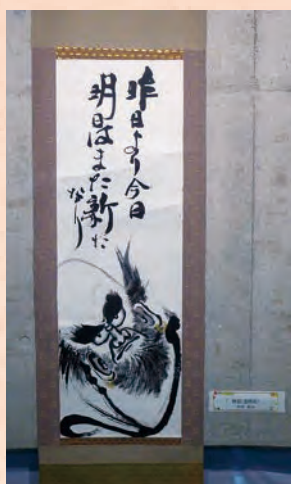 昨日より今日
明日はまた新た
なり